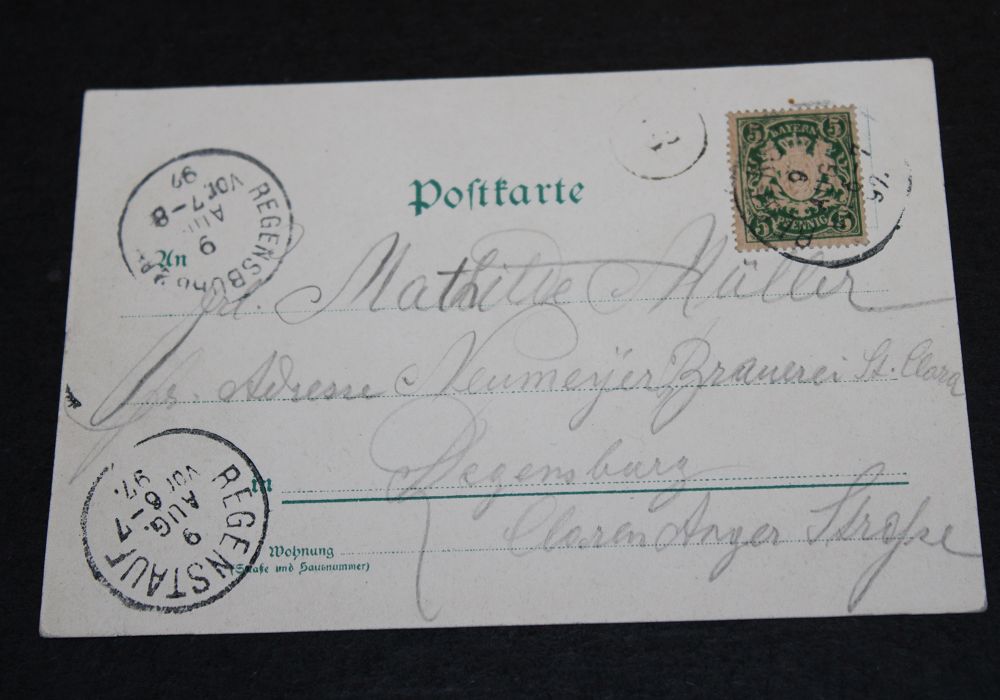 Postkarte
5 BAYERN 5
5 PFENNIG 5
REGENSBURG
9 AUG.
VOR. 7-8
97
An
Frl. Mathilde Müller
pr. Adresse Neumeÿer Brauerei St. Clara
in Regensburg
Claren Anger Straße
Wohnung
(Straße und Hausnummer)
REGENSTAUF
9 AUG.
6-7
VOR
97.